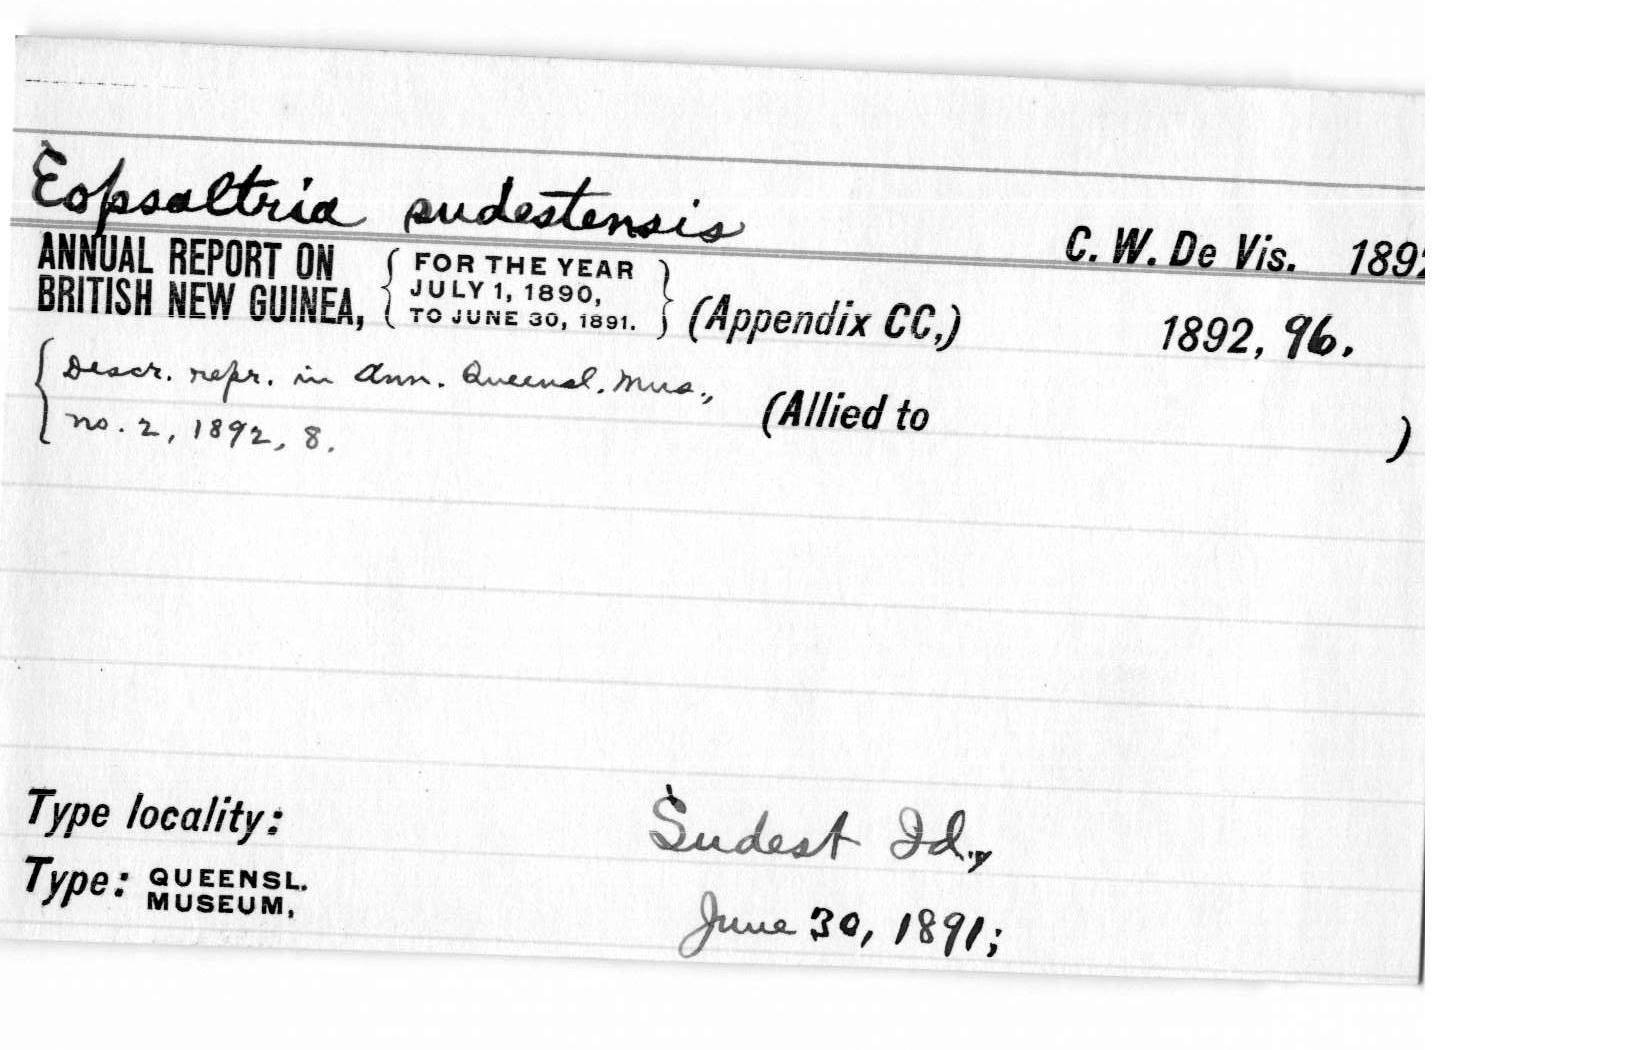 Eopsaltria sudestensis
C. W. De Vis. 1892
ANNUAL REPORT ON BRITISH NEW GUINEA, { FOR THE YEAR JULY 1, 1890, TO JUNE 30, 1891. } (Appendix CC,) 1892, 96.
{ Descr. repr. in Ann. Queensl. Mus.,
no. 2, 1892, 8.
(Allied to )
Type locality: Sudest Id.,
Type: QUEENSL. MUSEUM, June 30, 1891;